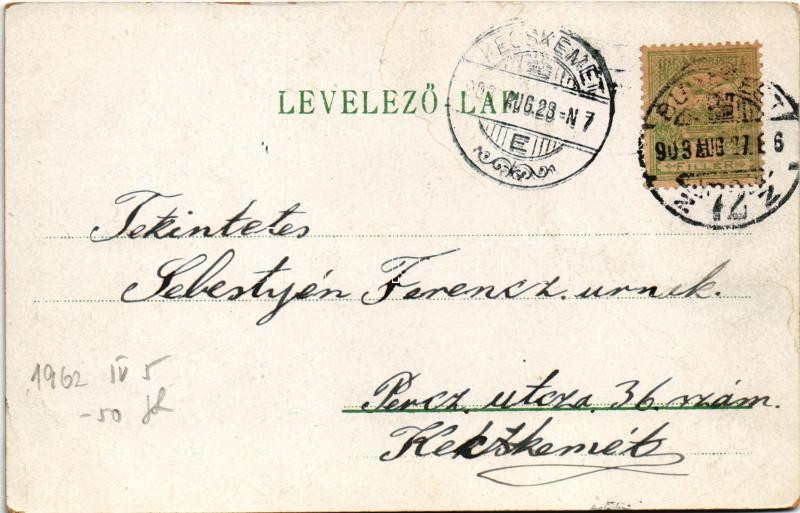 LEVELEZŐ-LAP
KECSKEMÉT
903 AUG. 28 - N 7
E
BUDAPEST
903 AUG 27 E 6
72
FILLÉR
Tekintetes
Sebestyén Ferencz. urnak.
Percz. utcza. 36. szám.
Kecskemét
1962 IV 5
-50